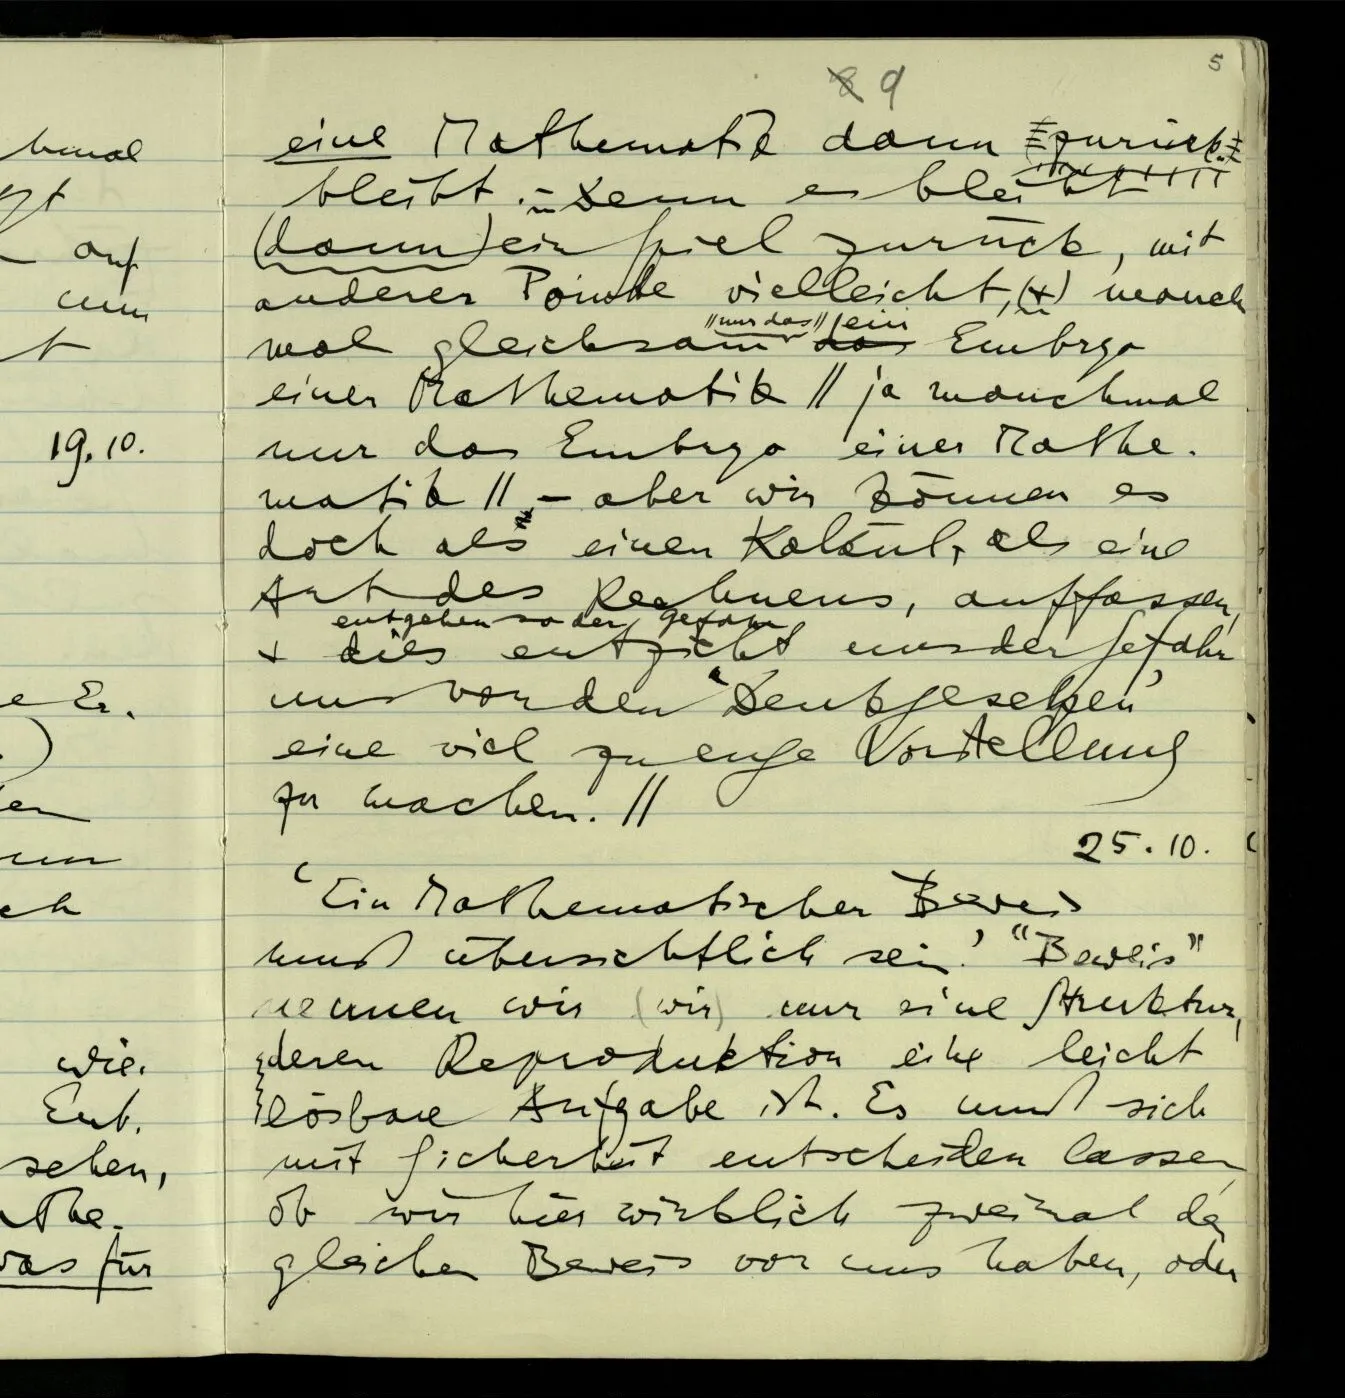 5
8 9
hmal
auf
19. 10.
e Er.
ch
wie.
Ent.
sehen,
The.
was für
eine Mathematik dann zurück.
bleibt. – Denn es bleibt
(dann) ein Spiel zurück, mit
anderer Pointe vielleicht, (+) manch
"nur das" / ein
mal gleichsam das Embryo
einer Mathematik // ja manchmal
nur das Embryo einer Mathe.
matik // – aber wir können es
doch als einen Kalkül, als eine
Art des Rechnens, auffassen,
entgehen so der Gefahr
+ dies entzieht uns der Gefahr
uns von den 'Denkgesetzen'
eine viel zu enge Vorstellung
zu machen. //
25. 10.
'Ein Mathematischer Beweis
muß übersichtlich sein.' "Beweis"
nennen wir (wir) nur eine Struktur,
deren Reproduktion eine leicht
lösbare Aufgabe ist. Es muß sich
mit Sicherheit entscheiden lassen,
ob wir hier wirklich zweimal den
gleichen Beweis vor uns haben, oder